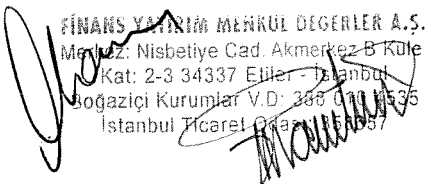 FİNANS YATIRIM MENKUL DEĞERLER A.Ş.
Merkez: Nisbetiye Cad. Akmerkez B Kule
Kat: 2-3 34337 Etiler - İstanbul
Boğaziçi Kurumlar V.D: 388
İstanbul Ticaret Odası